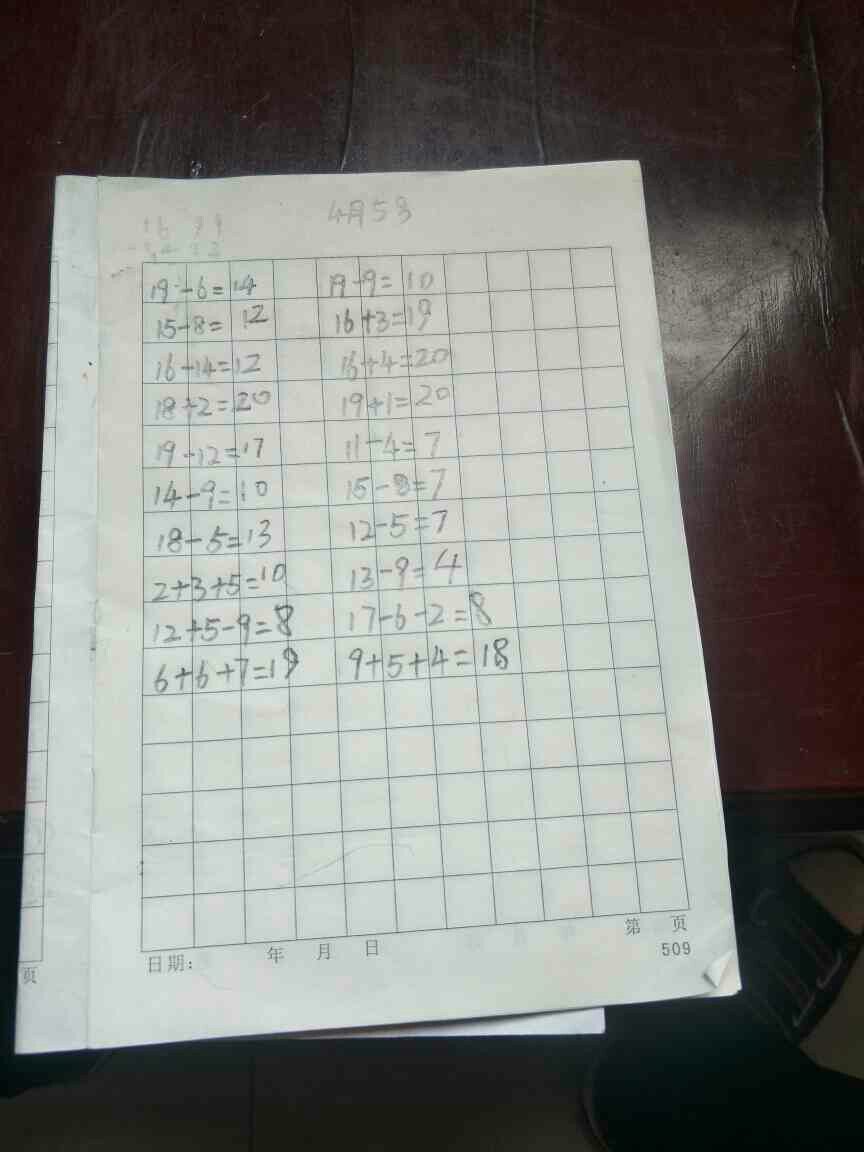 4月5号
19-6=14 19-9=10
15-8=12 16+3=19
16-14=12 16+4=20
18+2=20 19+1=20
19-12=17 11-4=7
14-9=10 15-8=7
18-5=13 12-5=7
2+3+5=10 13-9=4
12+5-9=8 17-6-2=8
6+6+7=19 9+5+4=18
日期: 年 月 日 第 页
509
页